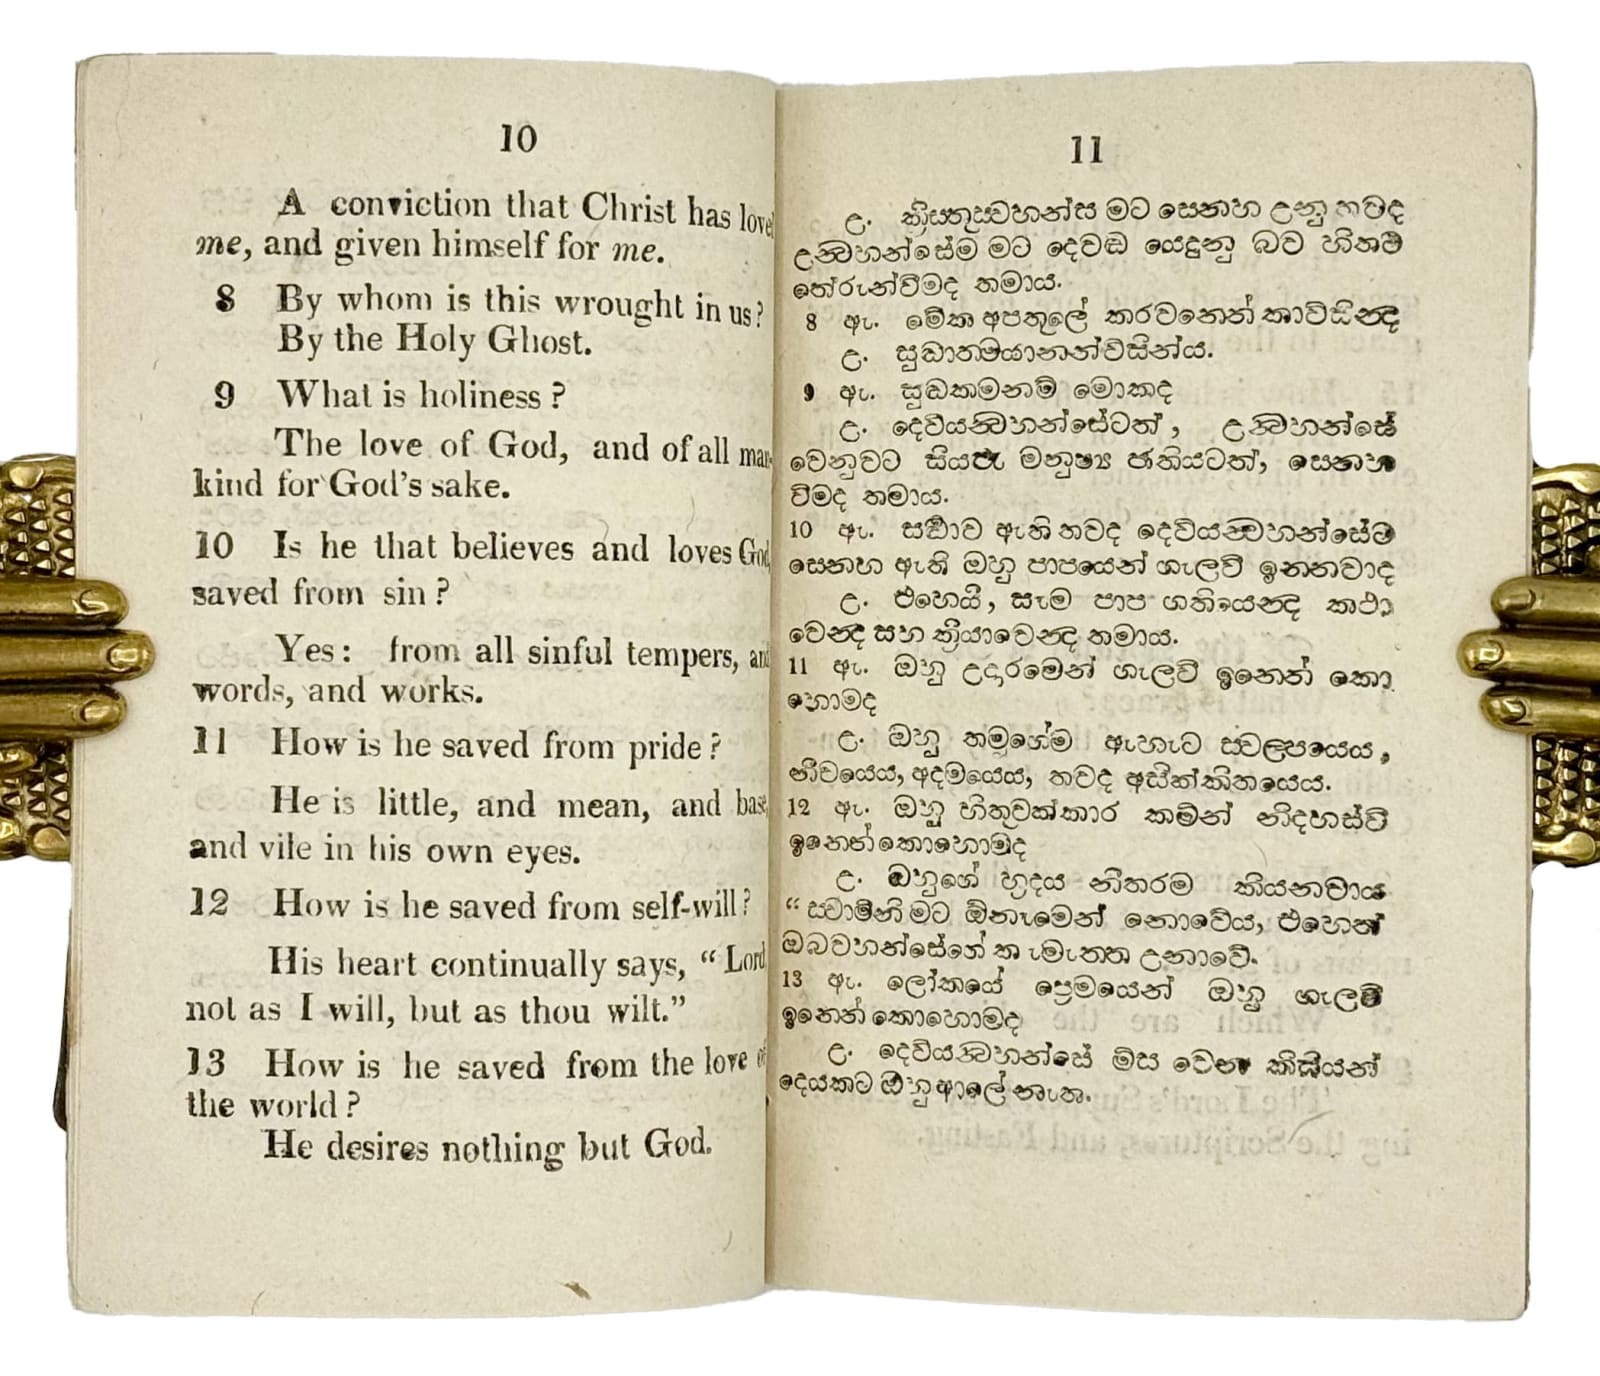 10
A conviction that Christ has love
me, and given himself for me.
8 By whom is this wrought in us?
By the Holy Ghost.
9 What is holiness?
The love of God, and of all man-
kind for God's sake.
10 Is he that believes and loves God,
saved from sin?
Yes: from all sinful tempers, and
words, and works.
11 How is he saved from pride?
He is little, and mean, and base,
and vile in his own eyes.
12 How is he saved from self-will?
His heart continually says, “Lord,
not as I will, but as thou wilt.”
13 How is he saved from the love of
the world?
He desires nothing but God.
11
උ. ක්‍රිස්තුස්වහන්ස මට සෙනහ උනු තවද
උන්වහන්සේම මට දෙවඬ යෙදුනු බව හිතට
තේරුන්වීමද තමාය.
8 ඇ. මේක අපතුලේ කරවනෙන් කාවිසින්ද
උ. සුඩාත්මයානන්විසින්ය.
9 ඇ. සුඩකමනම් මොකද
උ. දෙවියන්වහන්සේටත්, උන්වහන්සේ
වෙනුවට සියළු මනුෂ්‍ය ජාතියටත්, සෙනහ
වීමද තමාය.
10 ඇ. සර්‍ඩාව ඇති තවද දෙවියන්වහන්සේට
සෙනහ ඇති ඔහු පාපයෙන් ගැලවී ඉන්නවාද
උ. එහෙයි, සෑම පාප ගතියෙන්ද කථා
වෙන්ද සහ ක්‍රියාවෙන්ද තමාය.
11 ඇ. ඔහු උදාරමෙන් ගැලවී ඉනෙන් කො
හොමද
උ. ඔහු තමුගේම ඇහැට ස්වල්පයෙය,
නීචයෙය, අදමයෙය, තවද අසික්කිතයෙය.
12 ඇ. ඔහු හිතුවක්කාර කමින් නිදහස්වී
ඉනෙන් කොහොමද
උ. ඔහුගේ හ්‍රදය නිතරම කියනවාය
“ස්වාමිනි මට ඕනෑමෙන් නොවේය, එහෙත්
ඔබවහන්සේගේ කැමැත්ත උනාවේ.
13 ඇ. ලෝකයේ ප්‍රෙමයෙන් ඔහු ගැලවී
ඉනෙන් කොහොමද
උ. දෙවියන්වහන්සේ මිස වෙන කිසියන්
දෙයකට ඔහු ආලේ නැත.